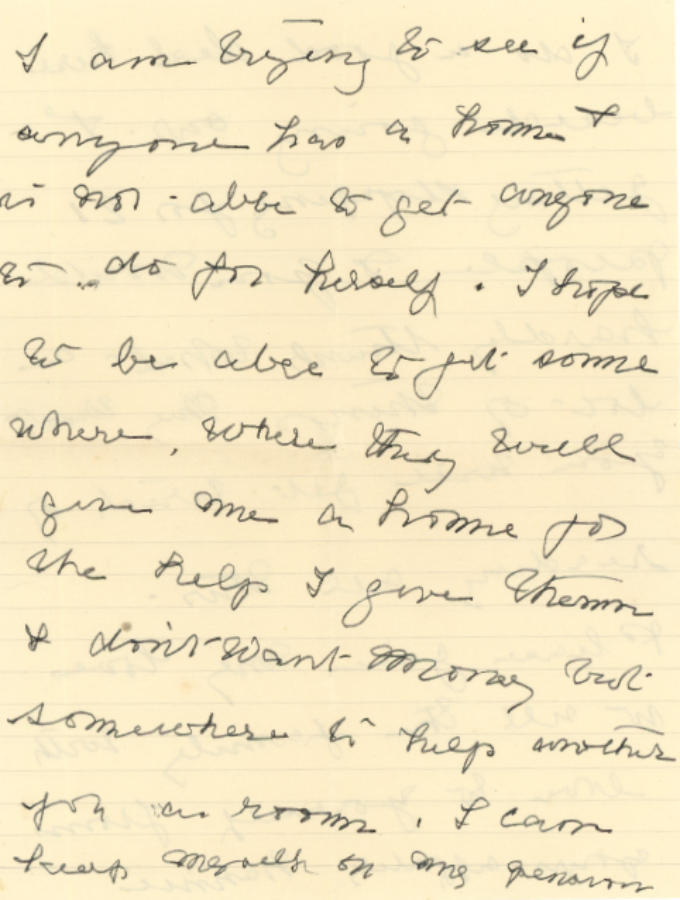 I am trying to see if
anyone has a home &
is not able to get anyone
to do for herself. I hope
to be able to get some
where, where they will
give me a home for
the help I give them
I don't want money but
somewhere to help another
for a room. I can
keep myself on my pension